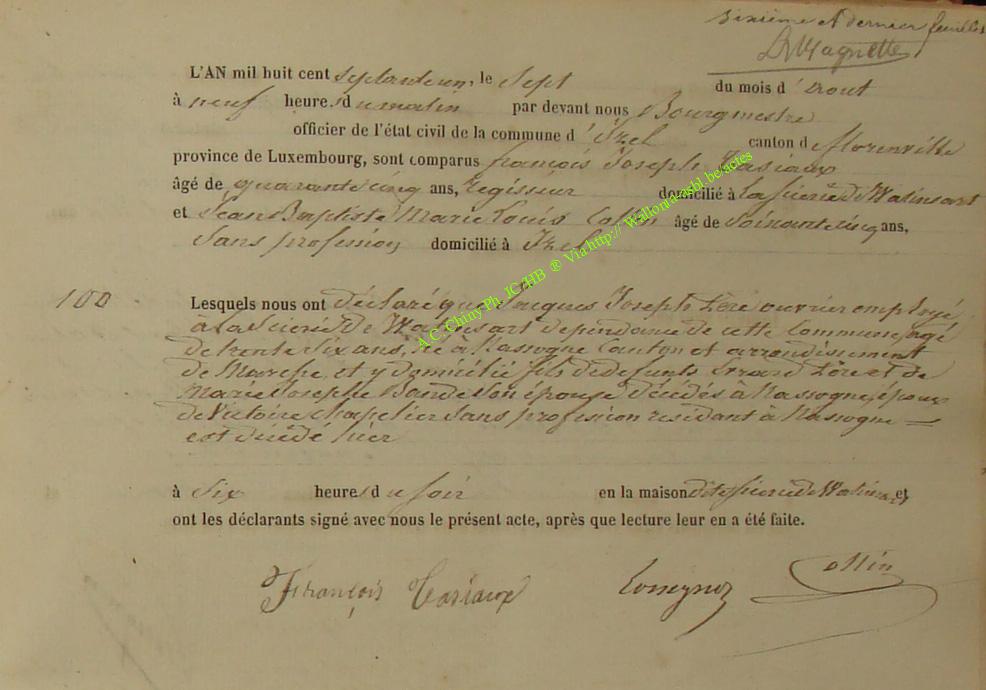 sixième et dernier feuillet
L'AN mil huit cent septante un, le sept du mois d'aout
à neuf heures du matin par devant nous Bourgmestre
officier de l'état civil de la commune d'Izel canton de florenville
province de Luxembourg, sont comparus françois Joseph Tasiaux
âgé de quarante cinq ans, Régisseur domicilié à La scierie de Watinsart
et Jean Baptiste Marie Louis Collin âgé de soixante cinq ans,
Sans profession domicilié à Izel
100 Lesquels nous ont déclaré que Jacques Joseph Zéré ouvrier employé
à La Scierie de Watinsart dépendance de cette Commune, agé
de trente six ans, né à Nassogne Canton et arrondissement
de Marche, et y domicilié fils de défunts Zéré et de
Marie Josephe Bande son épouse décédés à Nassogne, époux
de Victoire chapelier sans profession résidant à Nassogne
est décédé hier
à six heures du soir en la maison dite scierie de Watinsart et
ont les déclarants signé avec nous le présent acte, après que lecture leur en a été faite.
François Tasiaux Collin
A.C. Chiny Ph. JC.HB ® Via http:// Wallonia-asbl.be/actes